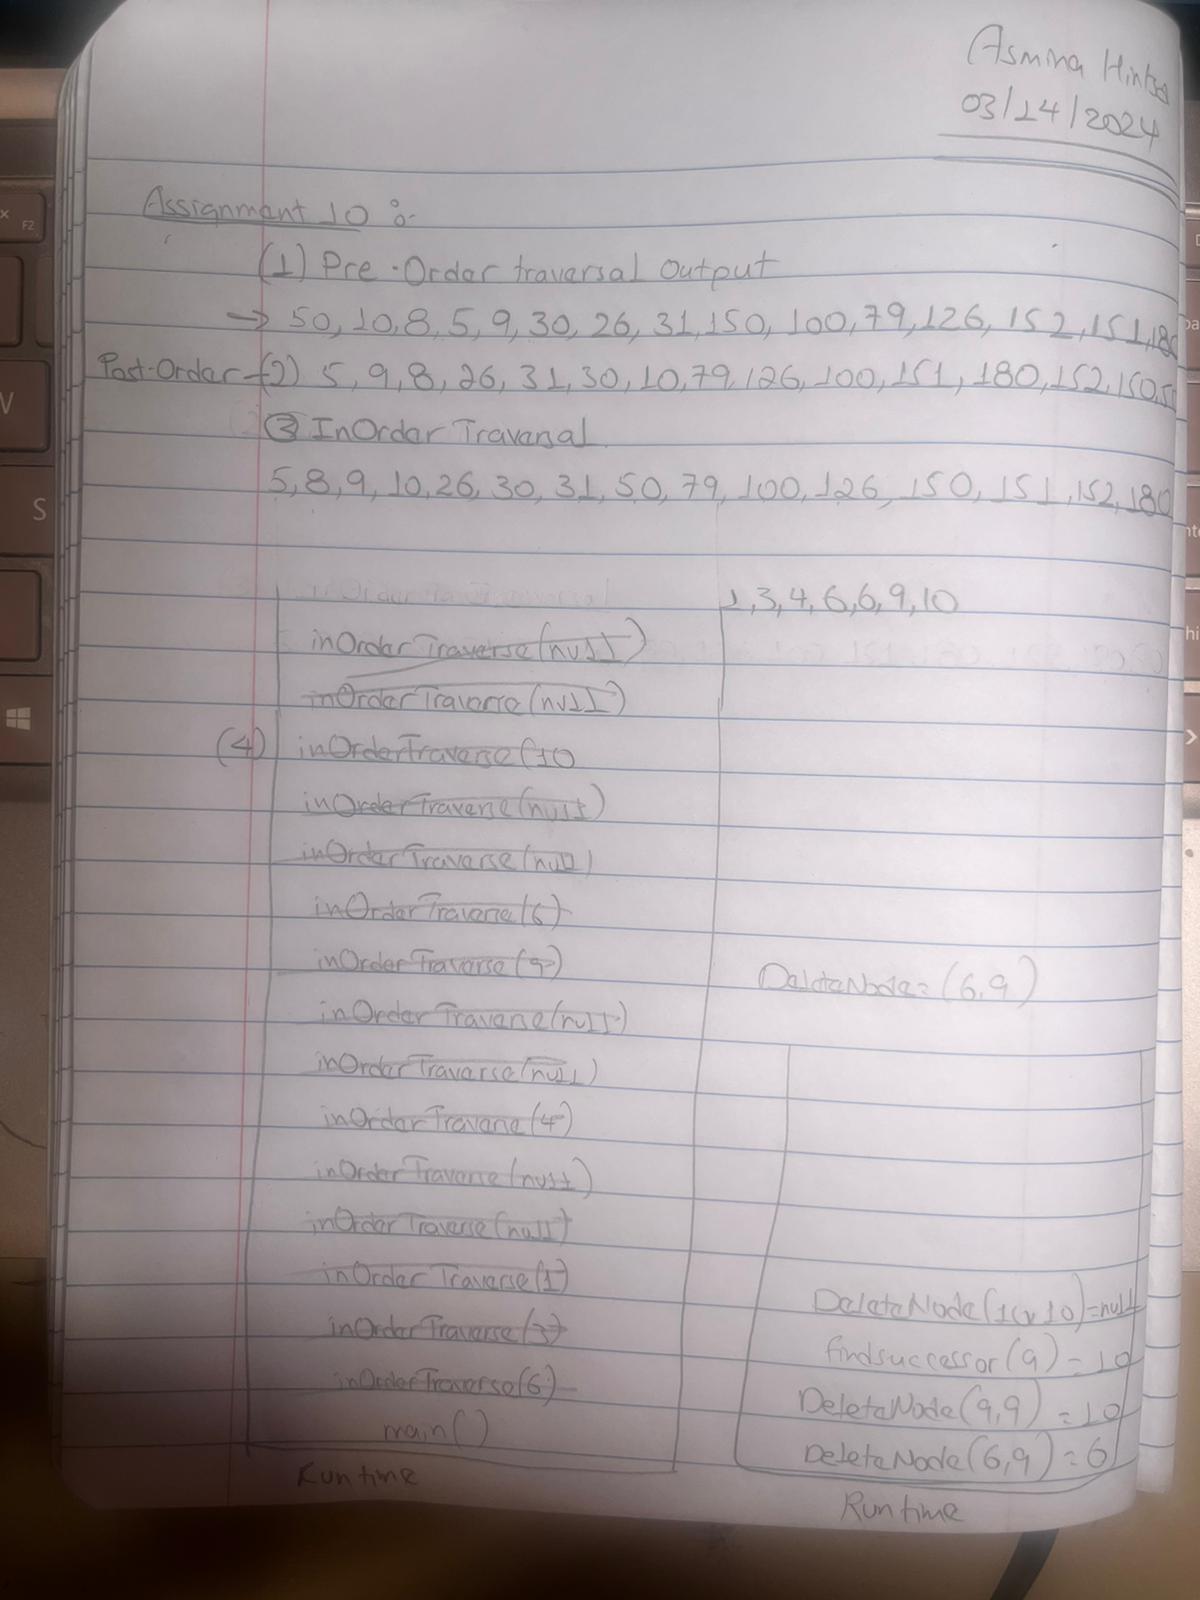 Asmina Hintsa
03/14/2024
Assignment 10 :-
(1) Pre-Order traversal Output
→ 50, 10, 8, 5, 9, 30, 26, 31, 150, 100, 79, 126, 152, 151, 180
Post-Order - (2) 5, 9, 8, 26, 31, 30, 10, 79, 126, 100, 151, 180, 152, 150, 50
(3) InOrder Traversal
5, 8, 9, 10, 26, 30, 31, 50, 79, 100, 126, 150, 151, 152, 180
1, 3, 4, 6, 6, 9, 10
inOrderTraverse(null)
inOrderTraverse(null)
(4) inOrderTraverse(10
inOrderTraverse(null)
inOrderTraverse(null)
inOrderTraverse(6)
inOrderTraverse(9)
inOrderTraverse(null)
inOrderTraverse(null)
inOrderTraverse(4)
inOrderTraverse(null)
inOrderTraverse(null)
inOrderTraverse(1)
inOrderTraverse(3)
inOrderTraverse(6)
main()
Runtime
DeleteNode=(6,9)
DeleteNode(10,10)=null
findsuccessor(9)=10
DeleteNode(9,9)=10
DeleteNode(6,9)=6
Runtime
F2
V
S